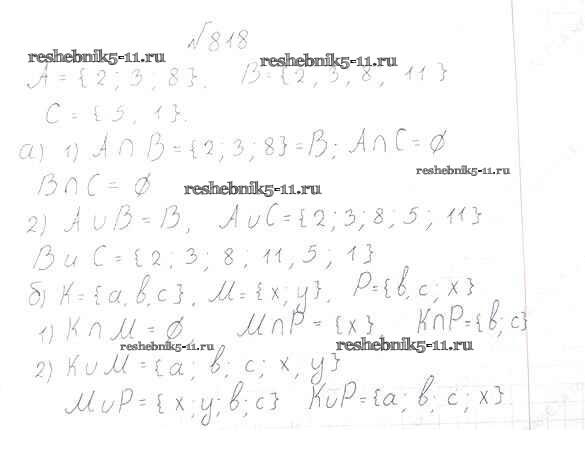 №818
reshebnik5-11.ru reshebnik5-11.ru
A = {2; 3; 8}. B = {2, 3, 8, 11}
C = {5, 1}.
а) 1) A ∩ B = {2; 3; 8} = B; A ∩ C = ∅
reshebnik5-11.ru
B ∩ C = ∅ reshebnik5-11.ru
2) A ∪ B = B, A ∪ C = {2; 3; 8; 5; 11}
B и C = {2; 3; 8; 11, 5; 1}
б) K = {a, b, c}, M = {x; y}, P = {b, c; x}
1) K ∩ M = ∅ M ∩ P = {x}, K ∩ P = {b; c}
reshebnik5-11.ru reshebnik5-11.ru
2) K ∪ M = {a; b; c; x, y}
M ∪ P = {x; y; b; c} K ∪ P = {a; b; c; x}